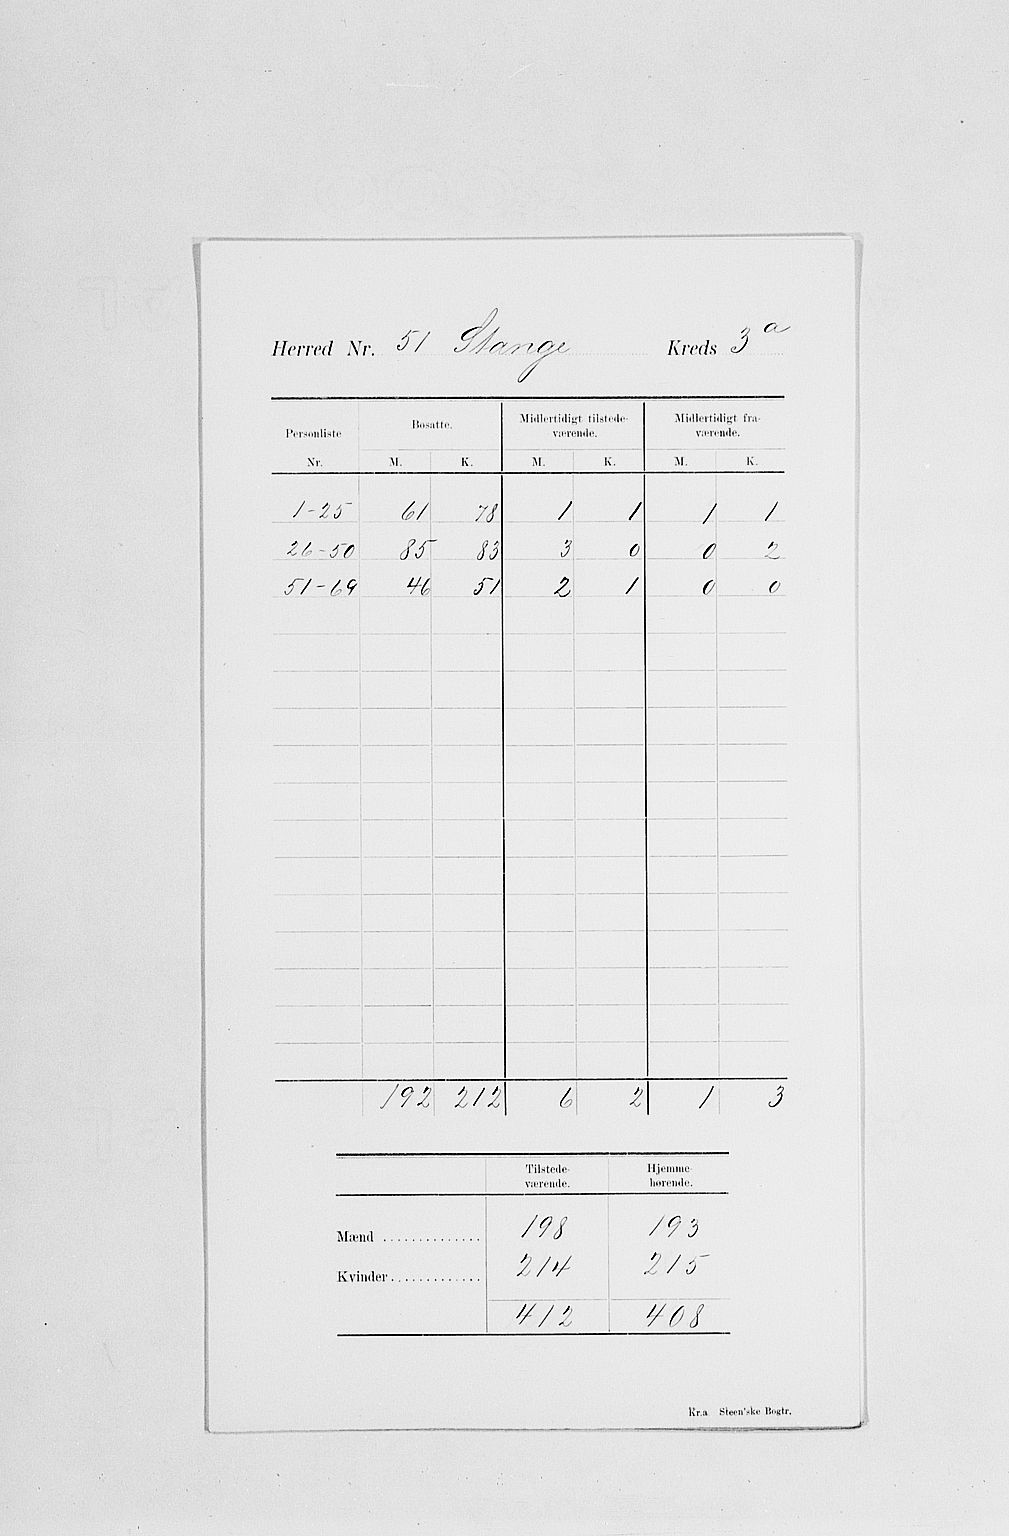 Herred Nr. 51 Stange Kreds 3a
Personliste Bosatte. Midlertidigt tilstede- Midlertidigt fra-
værende. værende.
Nr. M. K. M. K. M. K.
1-25 61 78 1 1 1 1
26-50 85 83 3 0 0 2
51-69 46 51 2 1 0 0
192 212 6 2 1 3
Tilstede- Hjemme-
værende. hørende.
Mænd .............. 198 193
Kvinder............. 214 215
412 408
Kr.a Steen'ske Bogtr.